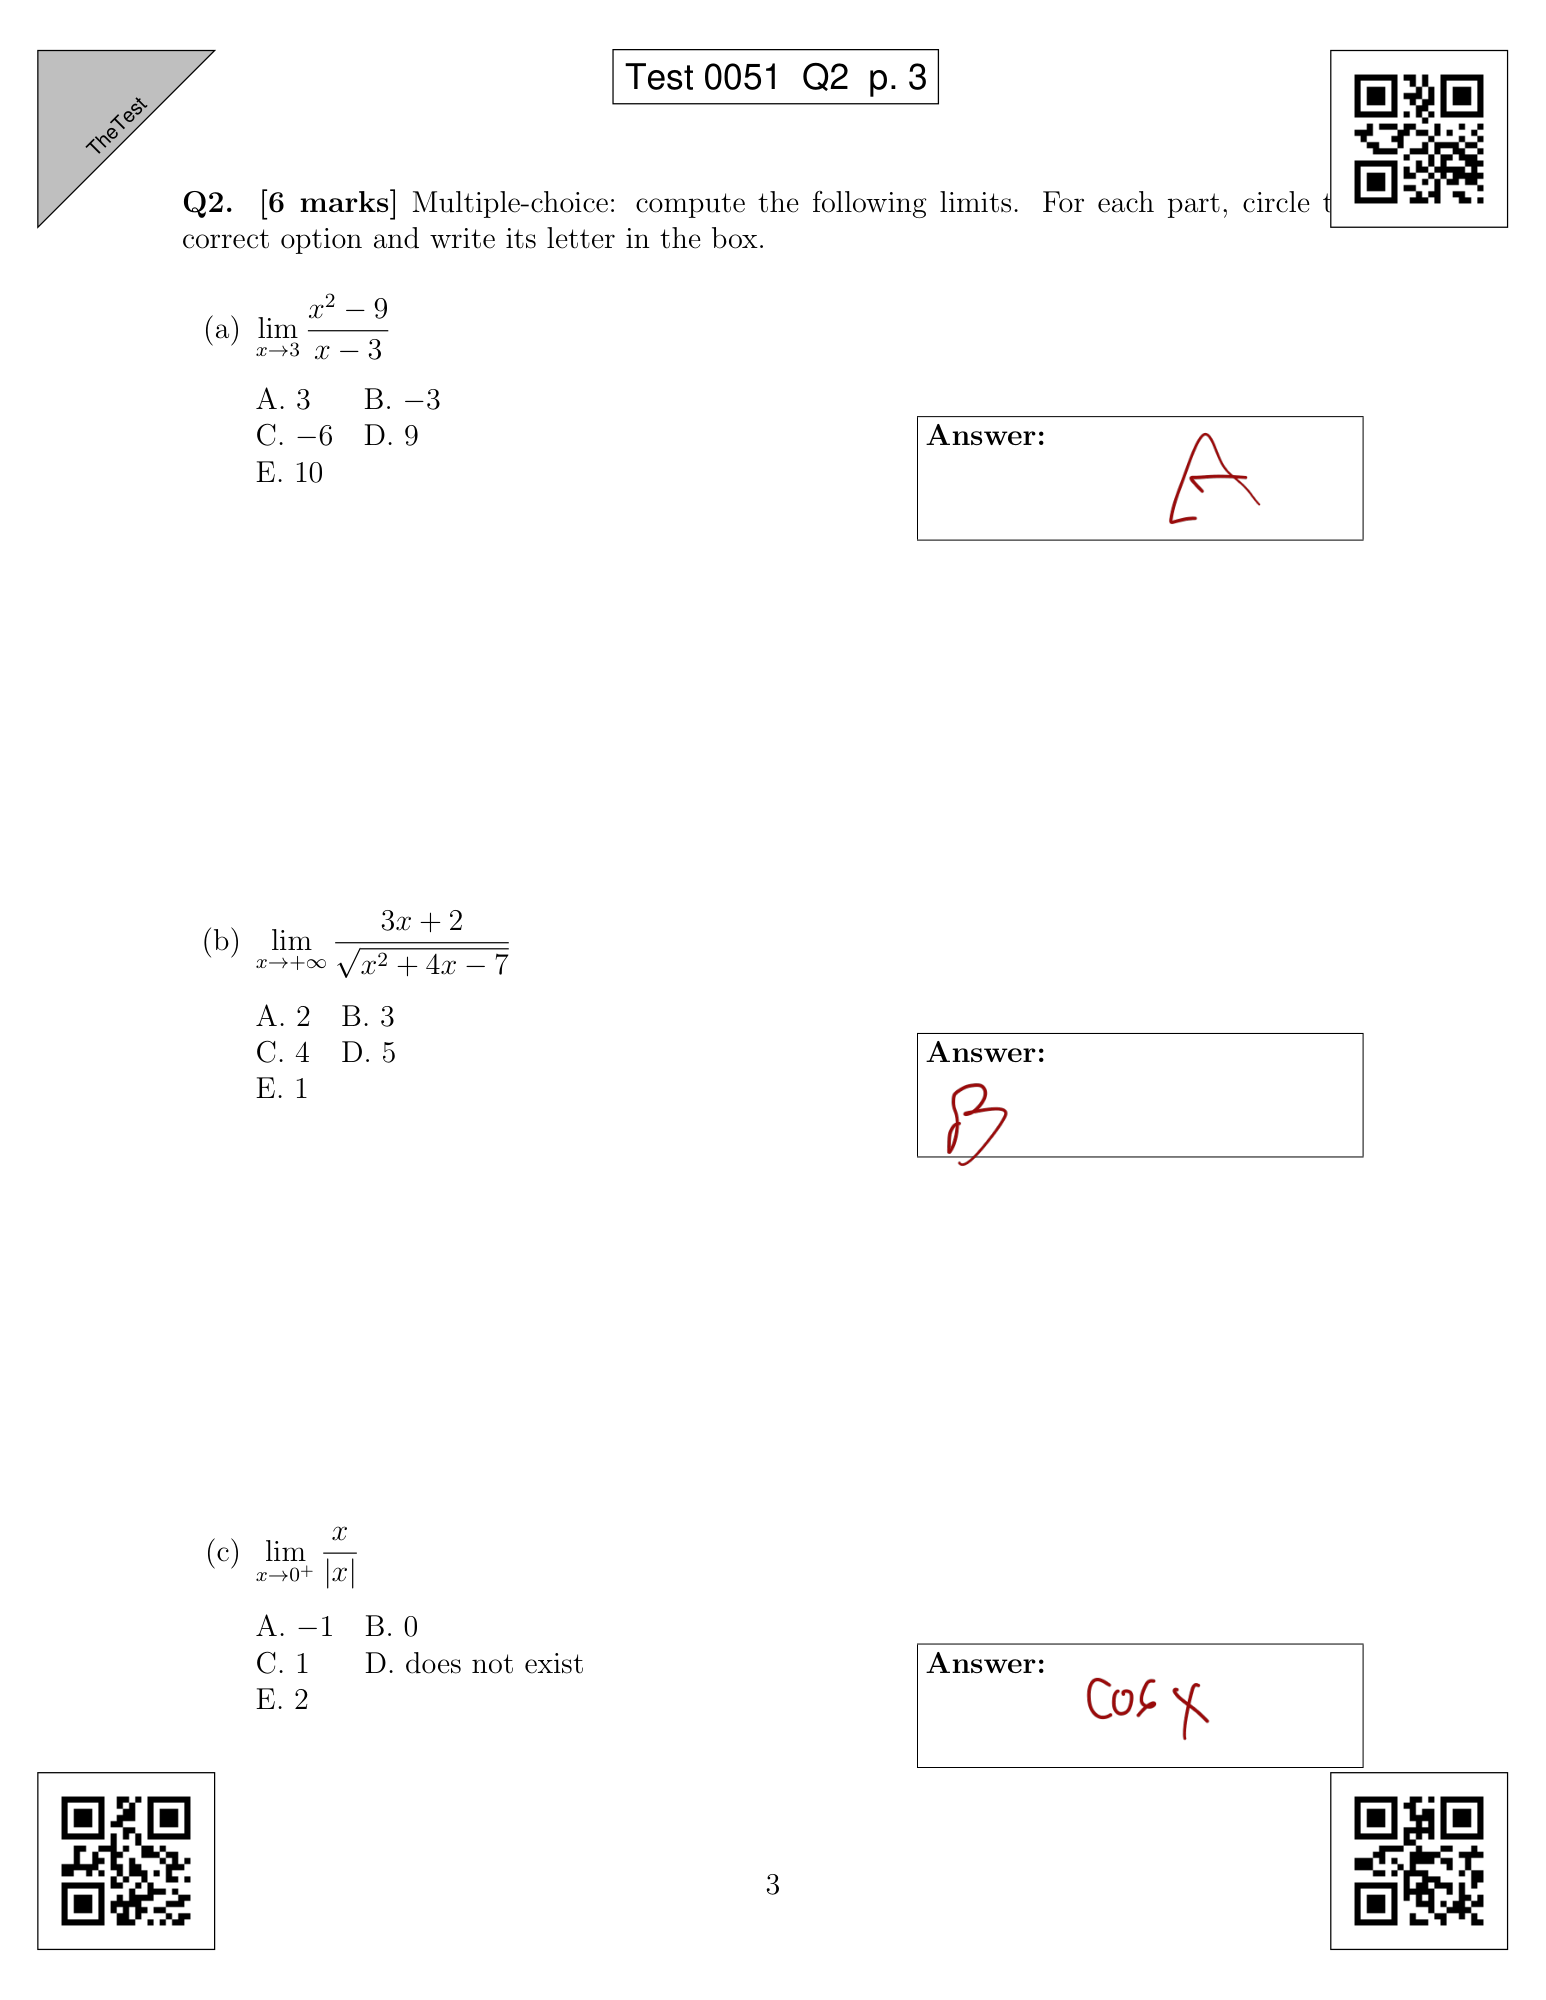 TheTest
Test 0051 Q2 p. 3
Q2. [6 marks] Multiple-choice: compute the following limits. For each part, circle t
correct option and write its letter in the box.
(a) lim x→3 (x² − 9)/(x − 3)
A. 3 B. −3
C. −6 D. 9
E. 10
Answer: A
(b) lim x→+∞ (3x + 2)/√(x² + 4x − 7)
A. 2 B. 3
C. 4 D. 5
E. 1
Answer:
B
(c) lim x→0⁺ x/|x|
A. −1 B. 0
C. 1 D. does not exist
E. 2
Answer:
cos x
3